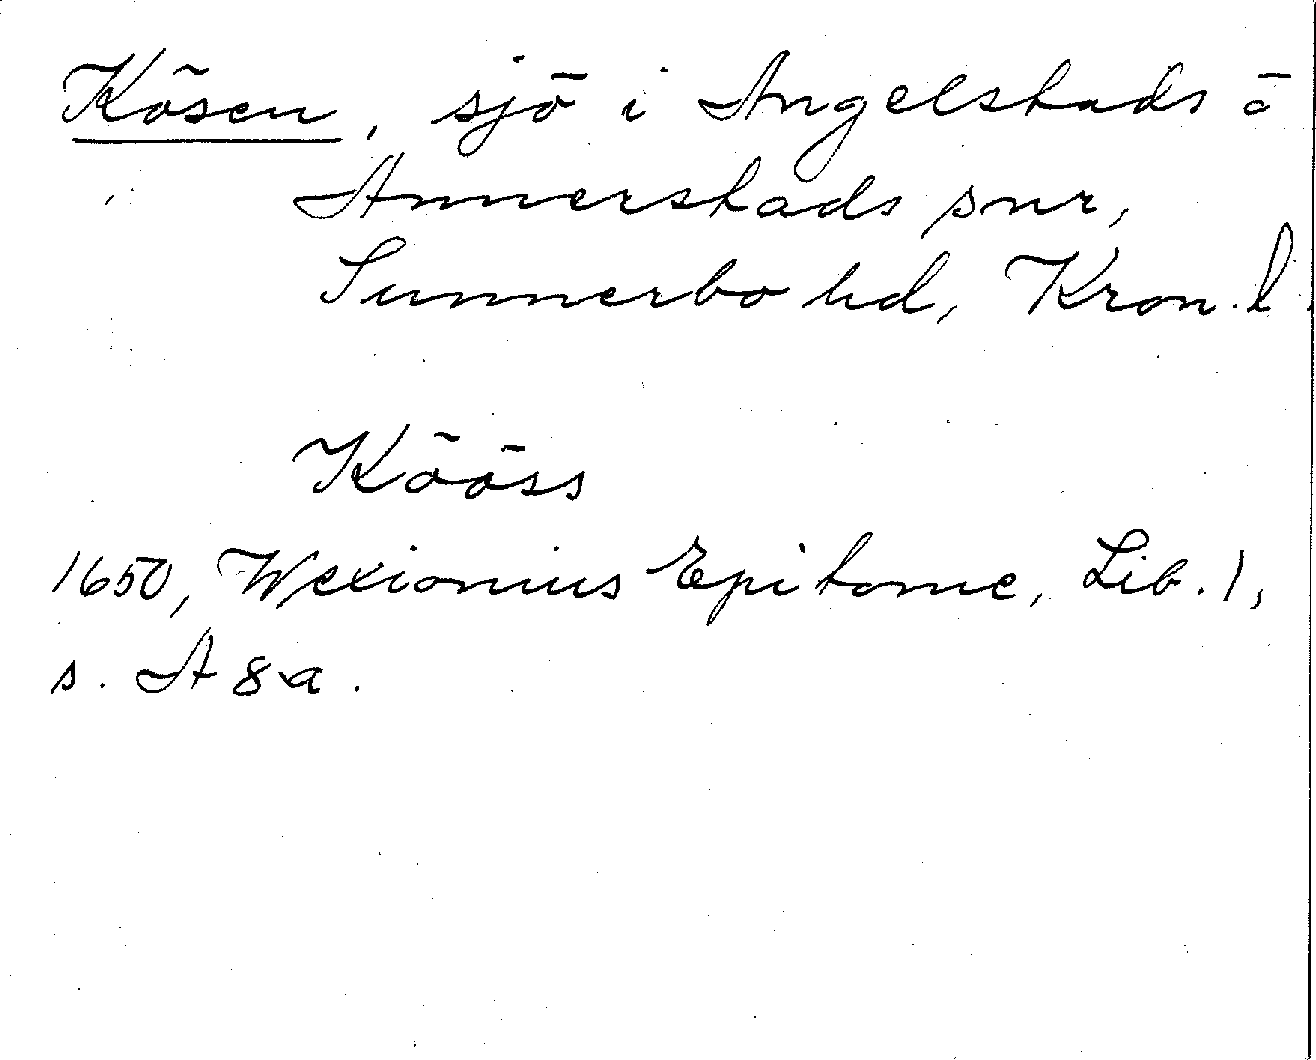 Kösen, sjö i Angelstads o
Annerstads snr,
Sunnerbo hd, Kron. l.
Kööss
1650, Wexionius Epitome, Lib. 1,
s. A 8 a.